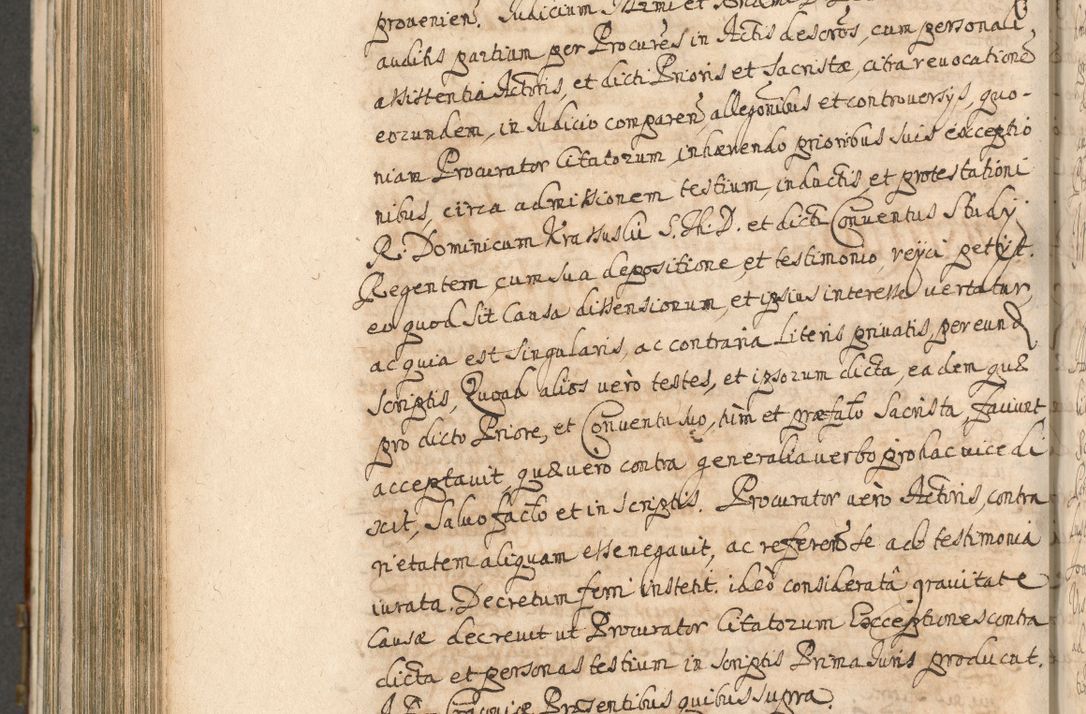 provenien. Judicium Illrmi et
auditis partium per Procures in Actis descros, cum personali
assistentia Actoris, et dicti Prioris et Sacristæ, citra revocatione
eorundem, in Judicio comparen, allegonibus et controversys, quo-
niam Procurator Citatorum inhærendo prioribus suis exceptio
nibus, circa admissionem testium, inductis, et protestationi
R. Dominicum Krassuski S. Th. D. et dicti Conventus Study
Regentem, cum sua depositione, et testimonio, reyci petyt.
eo quod sit Causa dissensionum, et ipsius interesse vertatur,
ac quia est singularis, ac contraria Literis privatis, per eund
scriptis, Quoad alios vero testes, et ipsorum dicta, eadem quæ
pro dicto Priore, et Conventu suo, tum et præfato Sacrista, faciunt
acceptavit, quæ vero contra generalia verbo pro hac vice di
xit, salvo facto et in scriptis. Procurator vero Actoris, contra
rietatem aliquam esse negavit, ac referen se ad testimonia
iurata. Decretum ferri instetit. ideo considerata gravitate
Causæ decrevit ut Procurator Citatorum Exceptiones contra
dicta et personas testium in scriptis Prima Juris producat.
Præsentibus quibus supra.